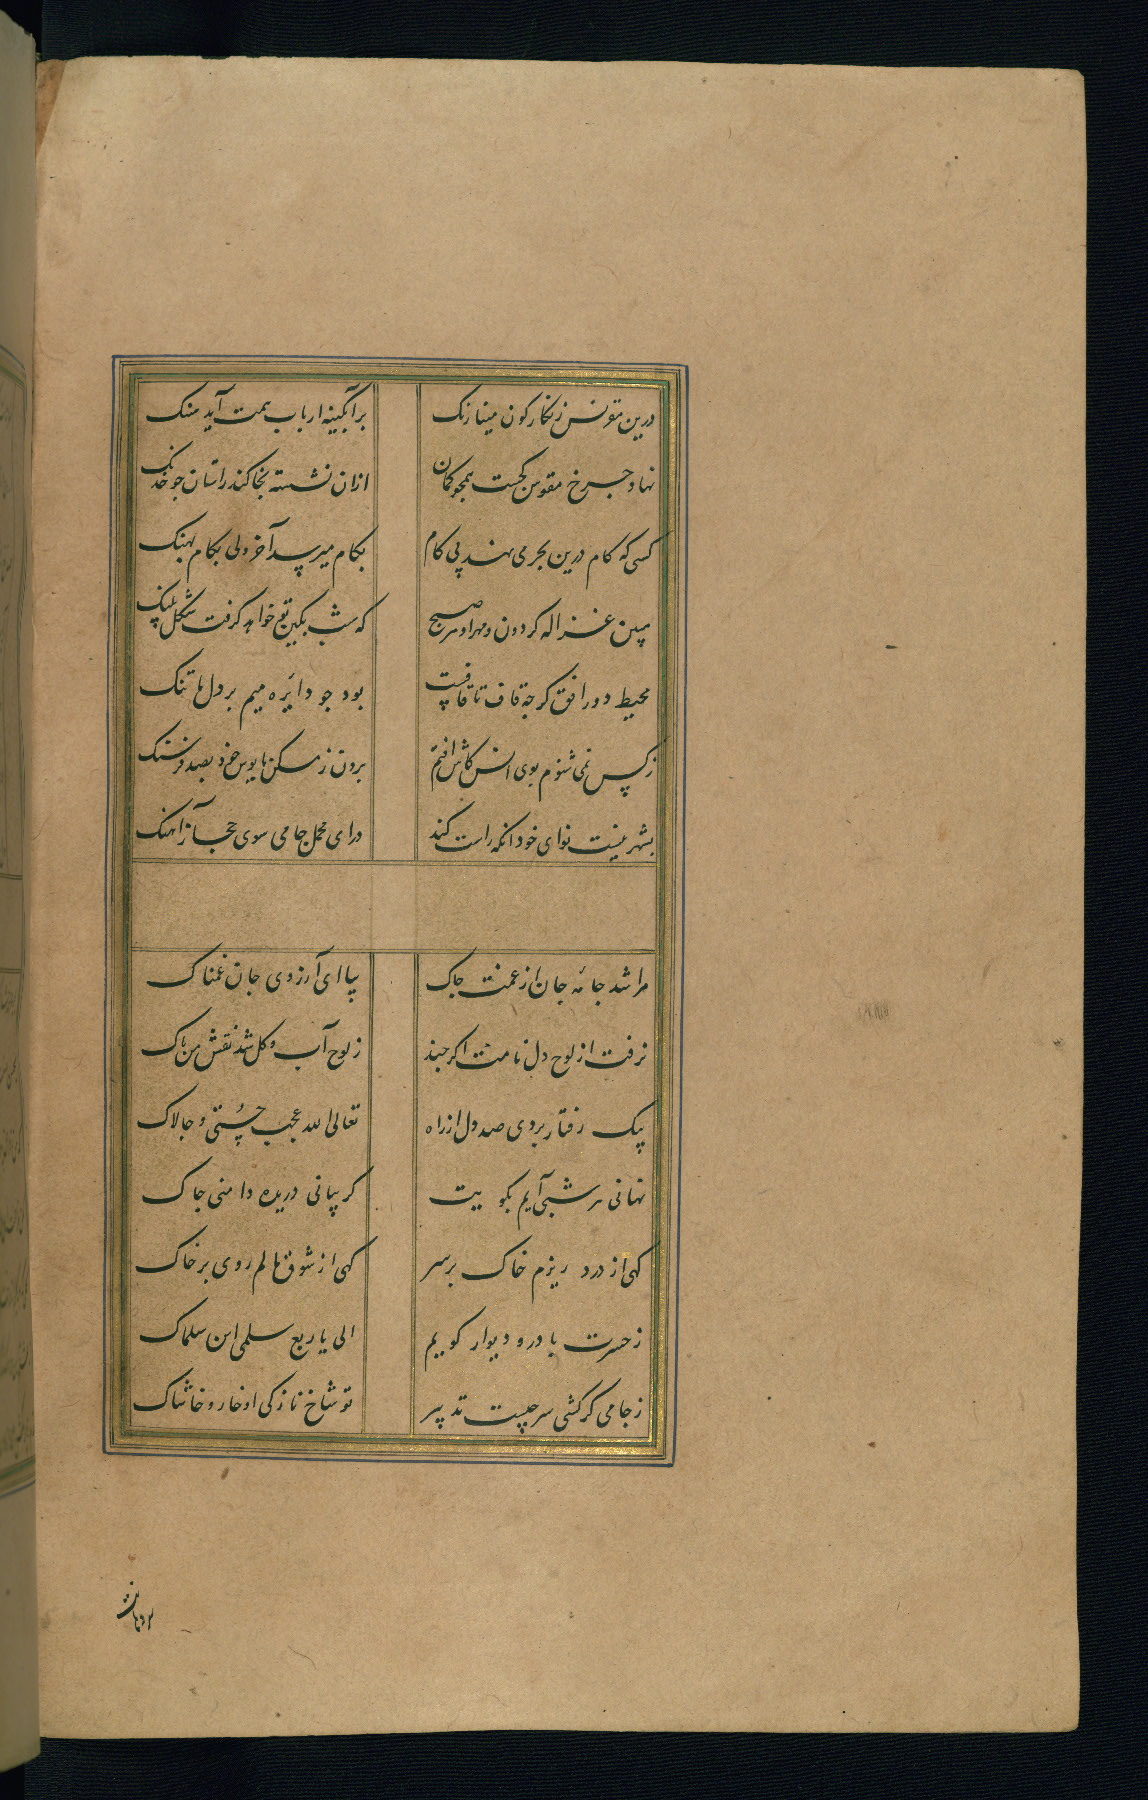 درین مقرنس زنکارکون مینا رنک برآبکینه ارباب همت آید سنک
نهاد چرخ مقوس کجست همچو کمان ازان نشسته بخاکند راستان جو خدنک
کسی که کام درین بحر می نهد پی کام بکام میرسد آخر ولی بکام نهنک
مبین غزاله کردون و مهر او هر صبح که شب بکین تو خواهد کرفت شکل پلنک
محیط دور افق کرجه قاف تا قافست بود جو دایره میم بر دل ما تنک
ز کس نمی شنوم بوی انس کاش افتم برون ز مسکن مالوس خود بصد فرسنک
بشهر نیست نوای خود انکه راست کند درای محمل جامی سوی حجاز آهنک
مرا شد جامه جان از غمت جاک بیا ای آرزوی جان غمناک
نرفت از لوح دل نامت اکر جند ز لوح آب و کل شد نقش من پاک
بیک رفتار بردی صد دل از راه تعالی الله عجب چستی و جالاک
نهانی هر شبی آیم بکویت کریبانی دریده دامنی جاک
کهی از درد ریزم خاک بر سر کهی از شوق مالم روی بر خاک
ز حسرت با در و دیوار کویم الی یا ربع سلمی این سلماک
ز جامی کر کشی سر جیست تدبیر تو شاخ نازکی او خار و خاشاک